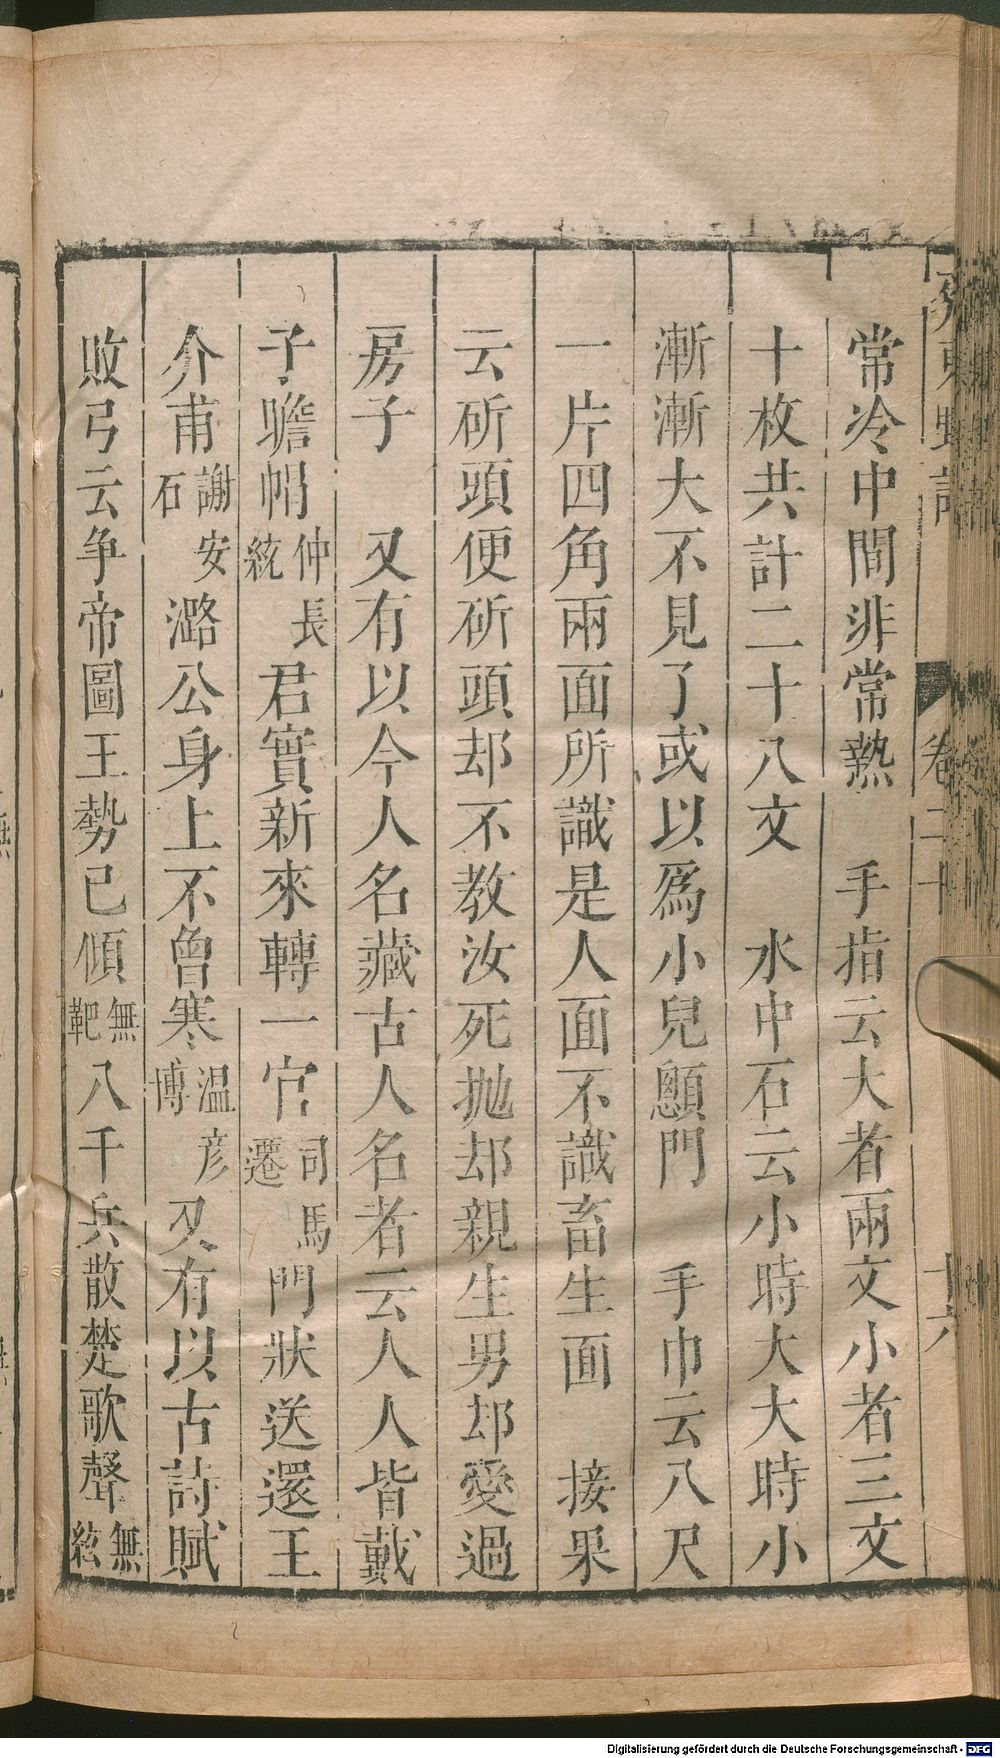 常冷中間非常熱　手指云大者兩文小者三文
十枚共計二十八文　水中石云小時大大時小
漸漸大不見了或以爲小兒顖門　手巾云八尺
一片四角兩面所識是人面不識畜生面　接果
云斫頭便斫頭却不教汝死抛却親生男却愛過
房子　又有以今人名藏古人名者云人人皆戴
子瞻帽仲長統君實新來轉一官司馬遷門狀送還王
介甫謝安石潞公身上不曾寒溫彦博又有以古詩賦
敗弓云争帝圖王勢已傾無靶八千兵散楚歌聲無絃
卷二十
十六
Digitalisierung gefördert durch die Deutsche Forschungsgemeinschaft - DFG